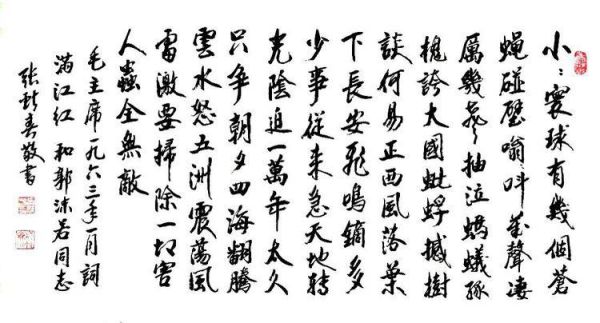 小：寰球有幾個蒼
蝇碰壁嗡叫幾聲凄
厲幾聲抽泣螞蟻缘
槐誇大國蚍蜉撼樹
談何易正西風落葉
下長安飛鳴鏑多
少事從来急天地轉
光陰迫一萬年太久
只争朝夕四海翻騰
雲水怒五洲震蕩風
雷激要掃除一切害
人蟲全無敵
毛主席一九六三年一月詞
滿江红 和郭沫若同志
张春敬書